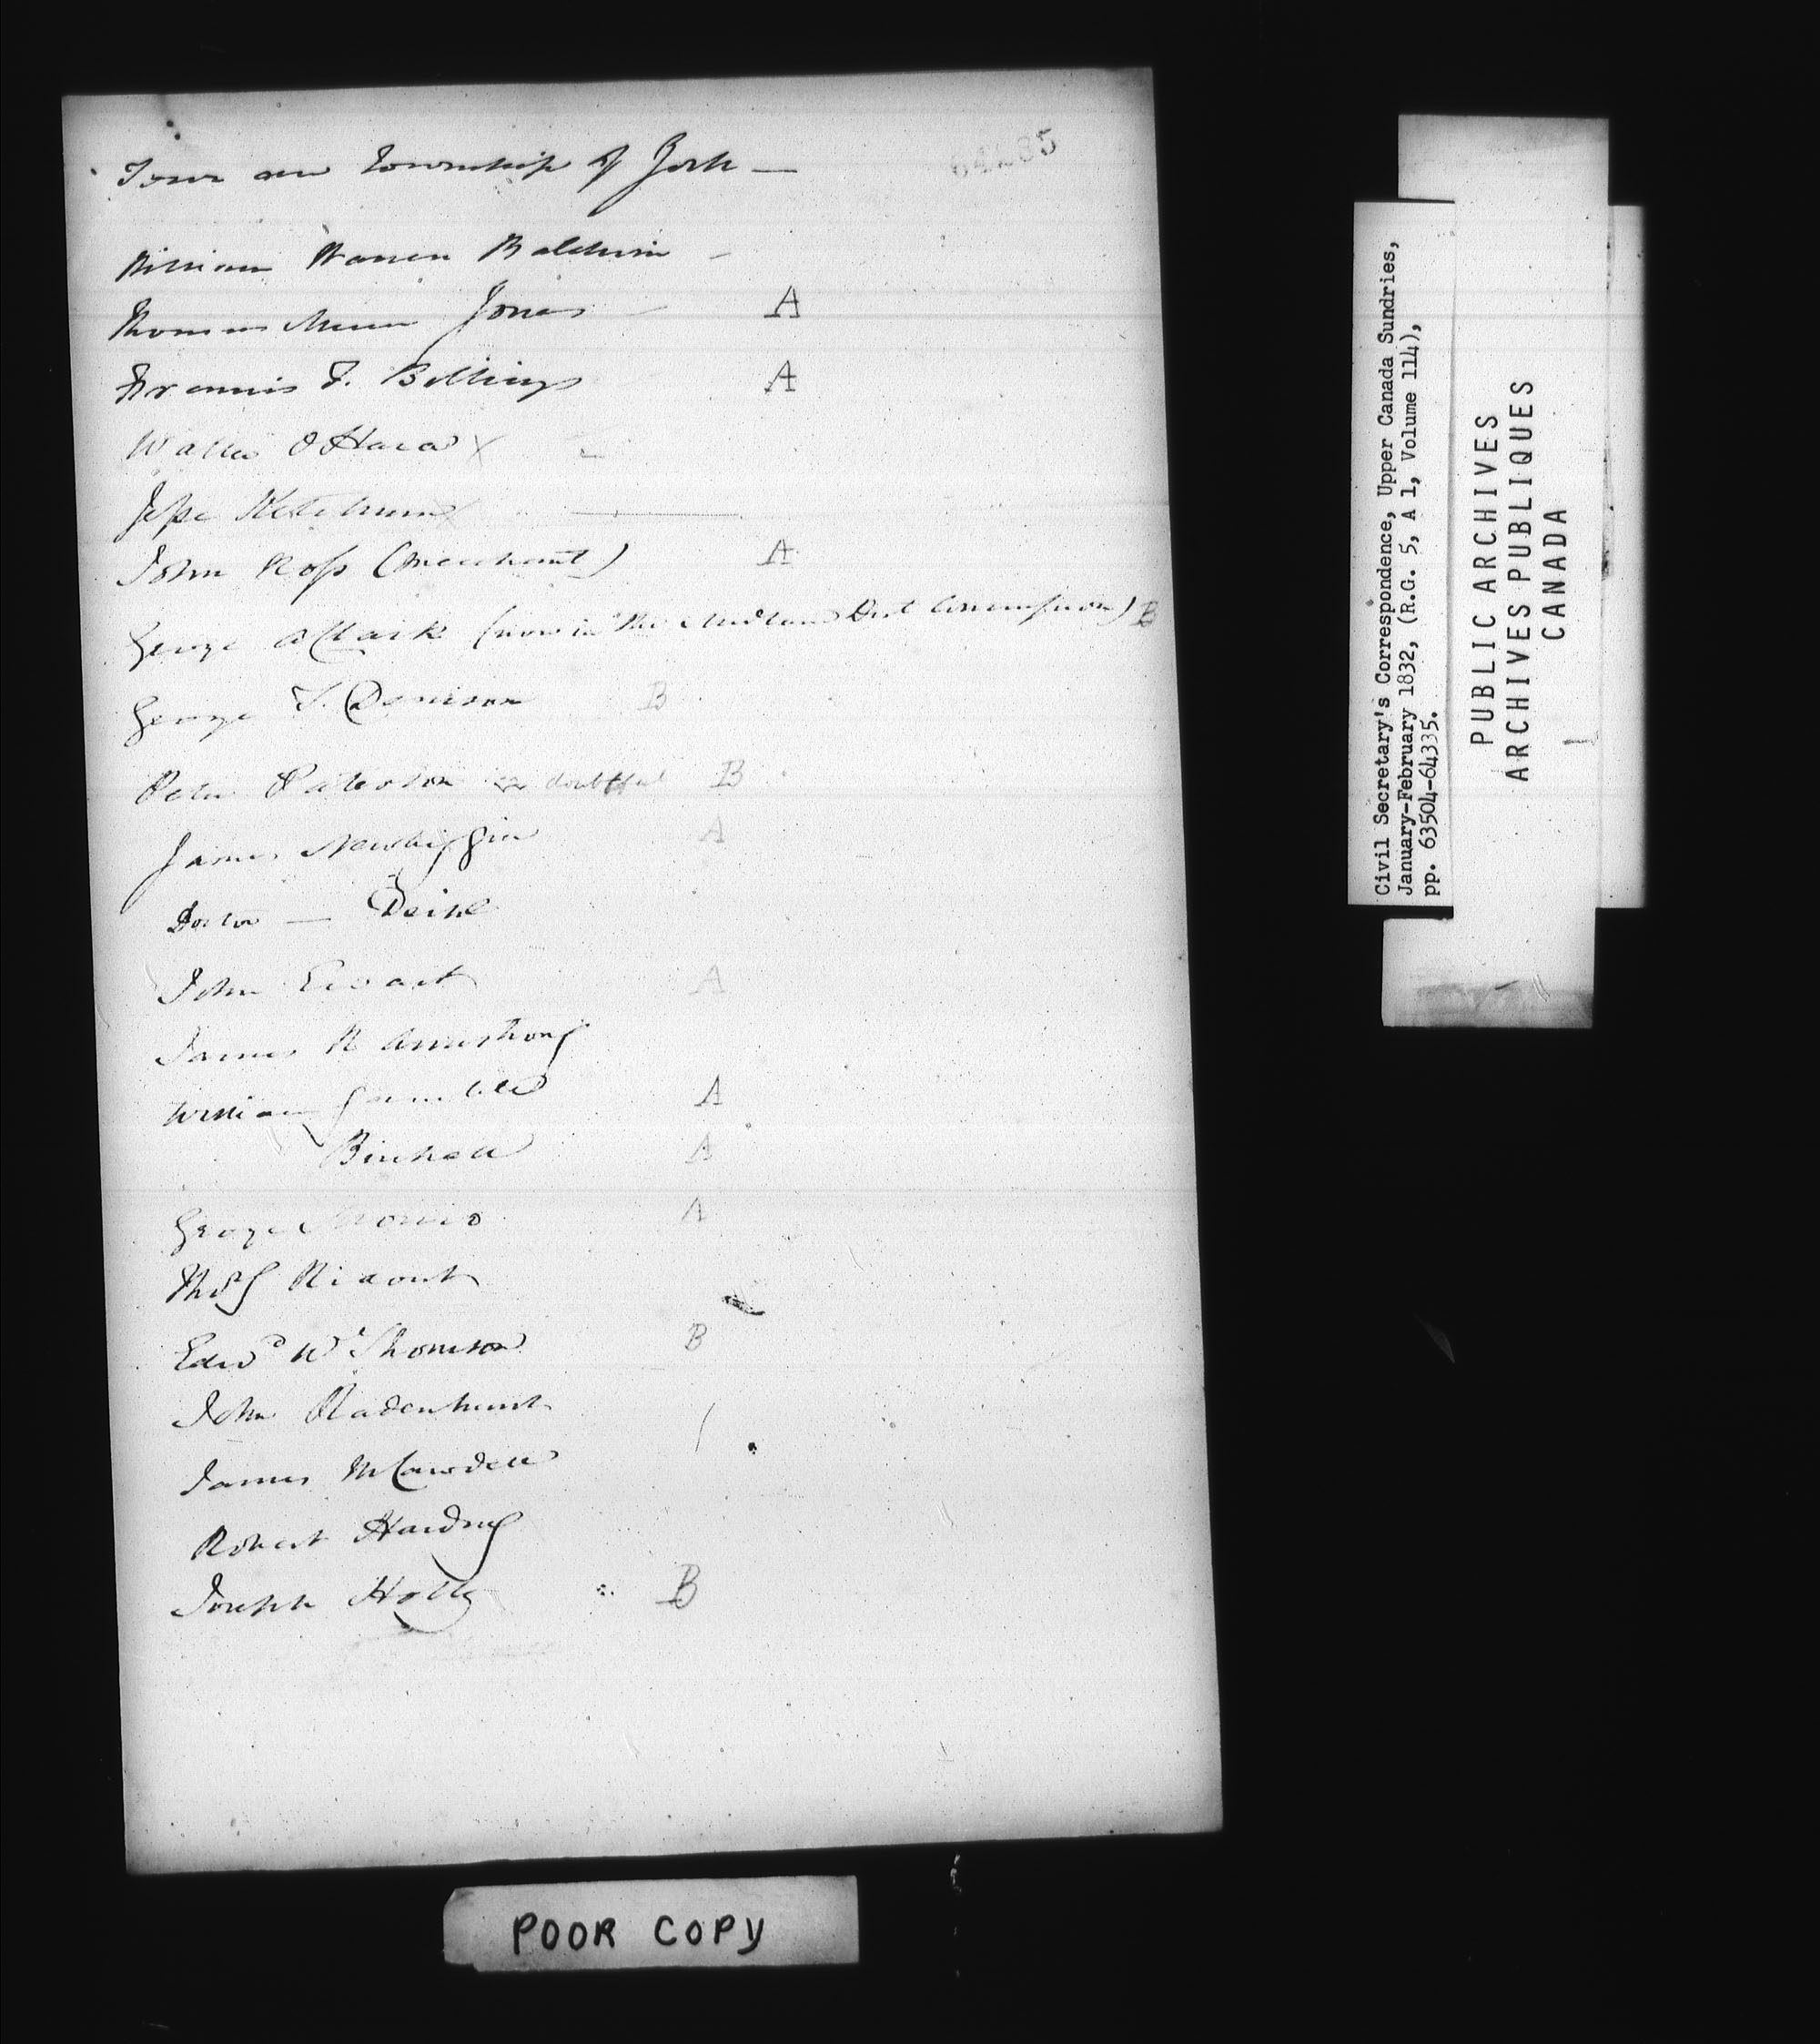 Town and Township of York —
64285
William Warren Baldwin -
Thomas Mercer Jones - A
Francis T. Billings A
Walter O Hara X
Jesse Ketchum X
John Ross (merchant) A
George A Clark (now in the Midland Dist Commission) B
George T. Denison B
Peter Paterson doubtful B
James Newbiggin A
Doctor — Deihl
John Ewart A
James R Armstrong
William Gamble A
Birchall A
George Monro A
Thos G Ridout
Edwd W Thomson B
John Radenhurst
James M Cawdell
Robert Harding
Joseph Holly B
POOR COPY
Civil Secretary's Correspondence, Upper Canada Sundries,
January-February 1832, (R.G. 5, A 1, Volume 114),
pp. 63504-64335.
PUBLIC ARCHIVES
ARCHIVES PUBLIQUES
CANADA